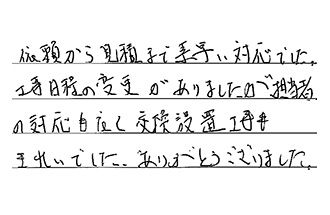 依頼から見積まで素早い対応でした。
工事日程の変更がありましたが担当者
の対応も良く交換設置工事も
きれいでした。ありがとうございました。